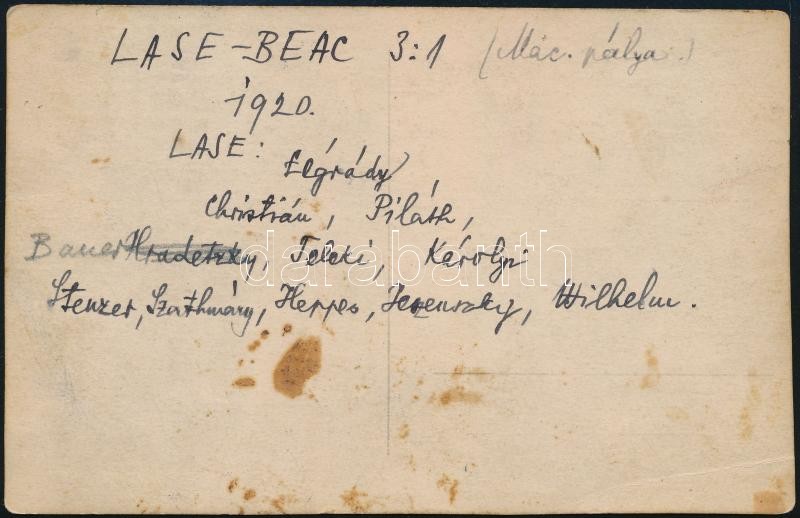 LASE-BEAC 3:1 (Mác. pálya.)
1920.
LASE:
Légrády,
Christián, Piláth,
Bauer Hradetzky, Teleki, Károlyi
Stenzer, Szathmáry, Herpes, Jezenszky, Wilhelm.
darabanth